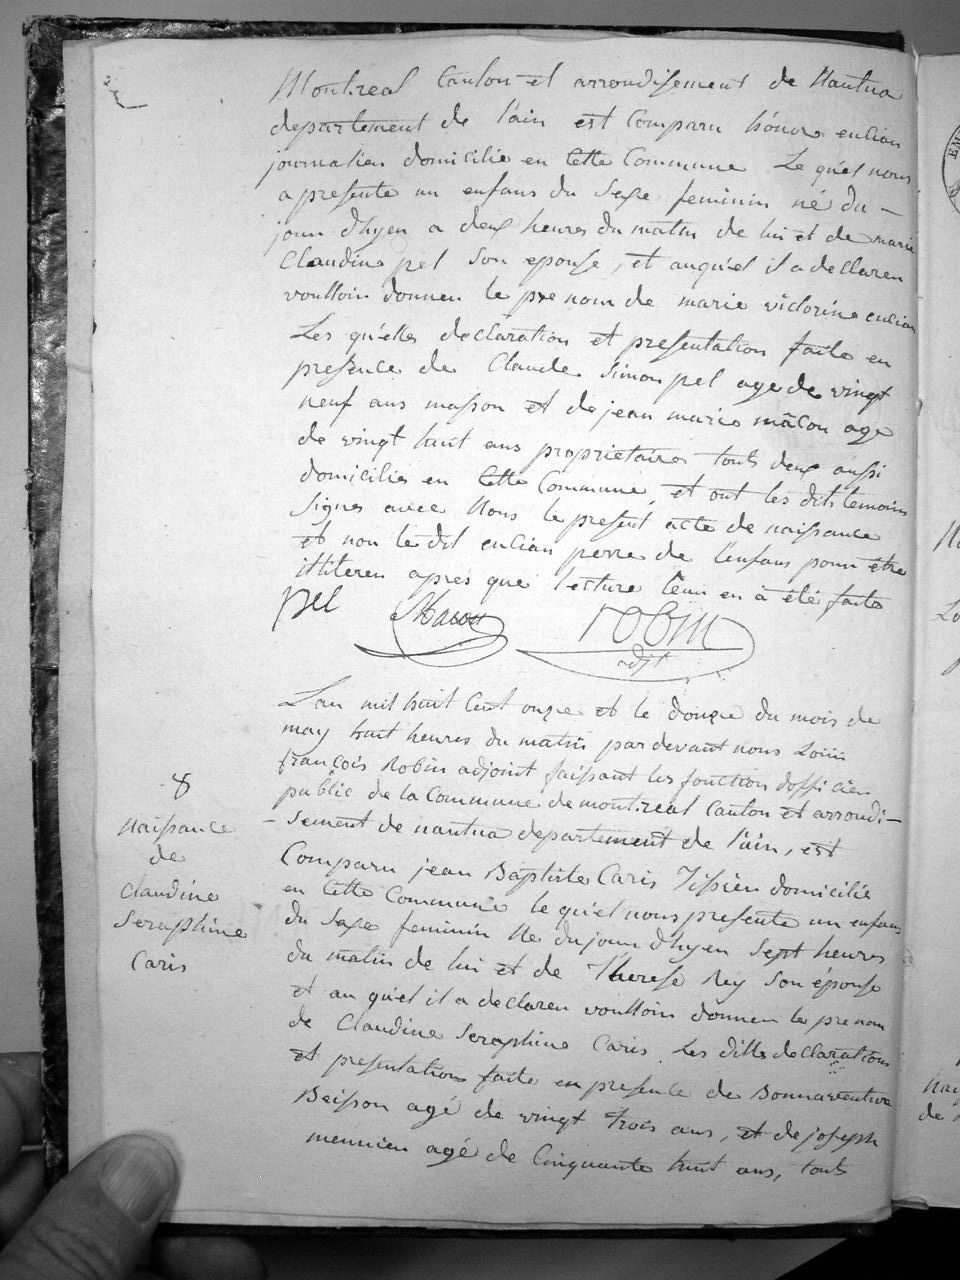 Montreal Canton et arrondissement de Nantua
departement de l'ain est Comparu honoré encian
journalien domicilié en Cette Commune Le quel nous
a presente un enfans du Sexe feminin né du –
jour d'hyen a deux heures du matin de lui et de marie
Claudine pel Son epouse, et auquel il a declaren
voulloin donnen le prenom de marie victorine encian
Les quelles declaration et presentation faite en
presence de Claude Simon pel age de vingt
neuf ans masson et de jean marie mâcon age
de vingt huit ans proprietaire touts deux aussi
domicilies en Cette Commune, et ont les dits temoins
Signes avec Nous le present acte de naissance
et non le dit encian perre de l'enfans pour être
ittiteren après que lecture leur en à été faite
pel Macon robin
adjt
L'an mil huit Cent onze et le douze du mois de
may huit heures du matin pardevant nous Louis
françois Robin adjoint faissant les fonction d'officien
public de la Commune de montreal Canton et arrondi–
– sement de nantua departement de l'ain, est
Comparu jean Baptiste Caris Tissien domicilié
en Cette Commune le quel nous presente un enfans
du Sexe feminin Ne du jour d'hyen Sept heures
du matin de lui et de Therese Rey Son épouse
et au quel il a declaren voulloin donnen le prenom
de Claudine Seraphine Caris. Les dittes declarations
et presentations faite en presence de Bonnaventure
Beisson agé de vingt trois ans, et de joseph
meunien agé de Cinquante huit ans, touts
8
Naissance
de
Claudine
Seraphine
Caris